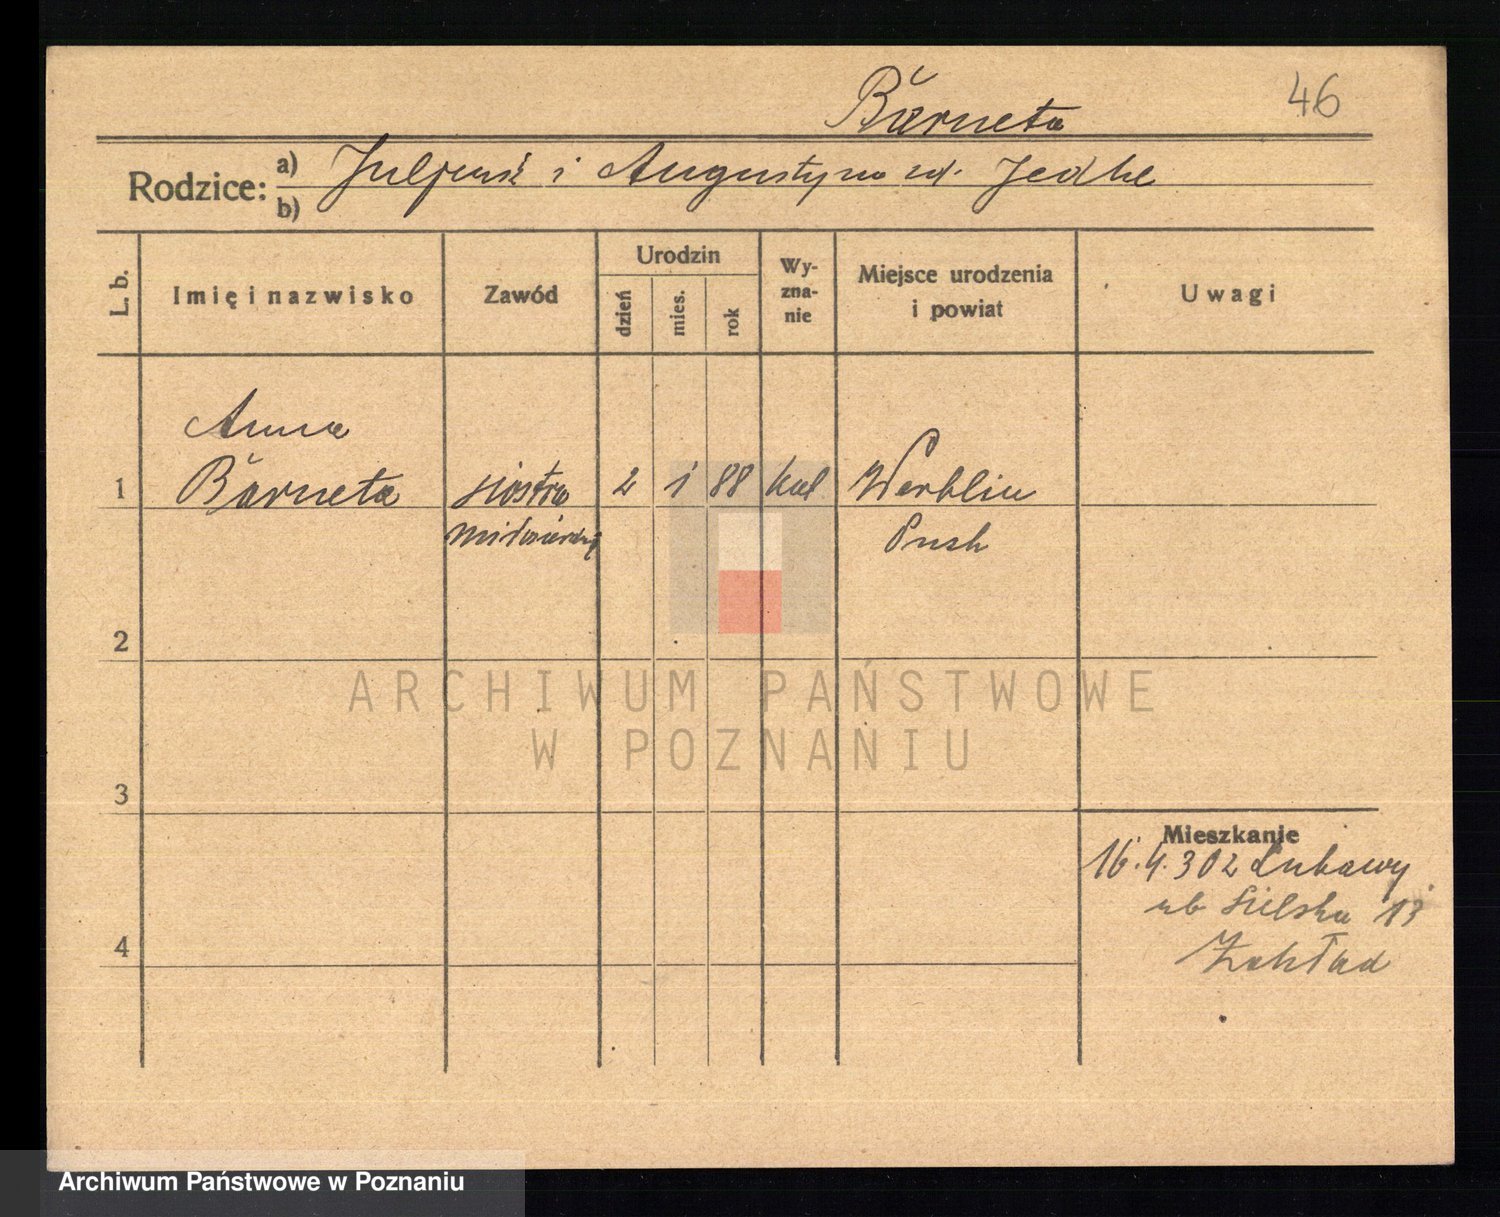 46
Bărneta
Rodzice: a) Juljusz i Augustyna zd. Jedke
b)
L. b.
Imię i nazwisko
Zawód
Urodzin
dzień
mies.
rok
Wy-
zna-
nie
Miejsce urodzenia
i powiat
Uwagi
Anna
1 Bărneta siostra 2 1 88 kat. Werblin
miłosierdzia Puck
2
3
4
Mieszkanie
16.4.30 z Lubawy
ub Sielska 13
Zakład
ARCHIWUM PAŃSTWOWE
W POZNANIU
Archiwum Państwowe w Poznaniu